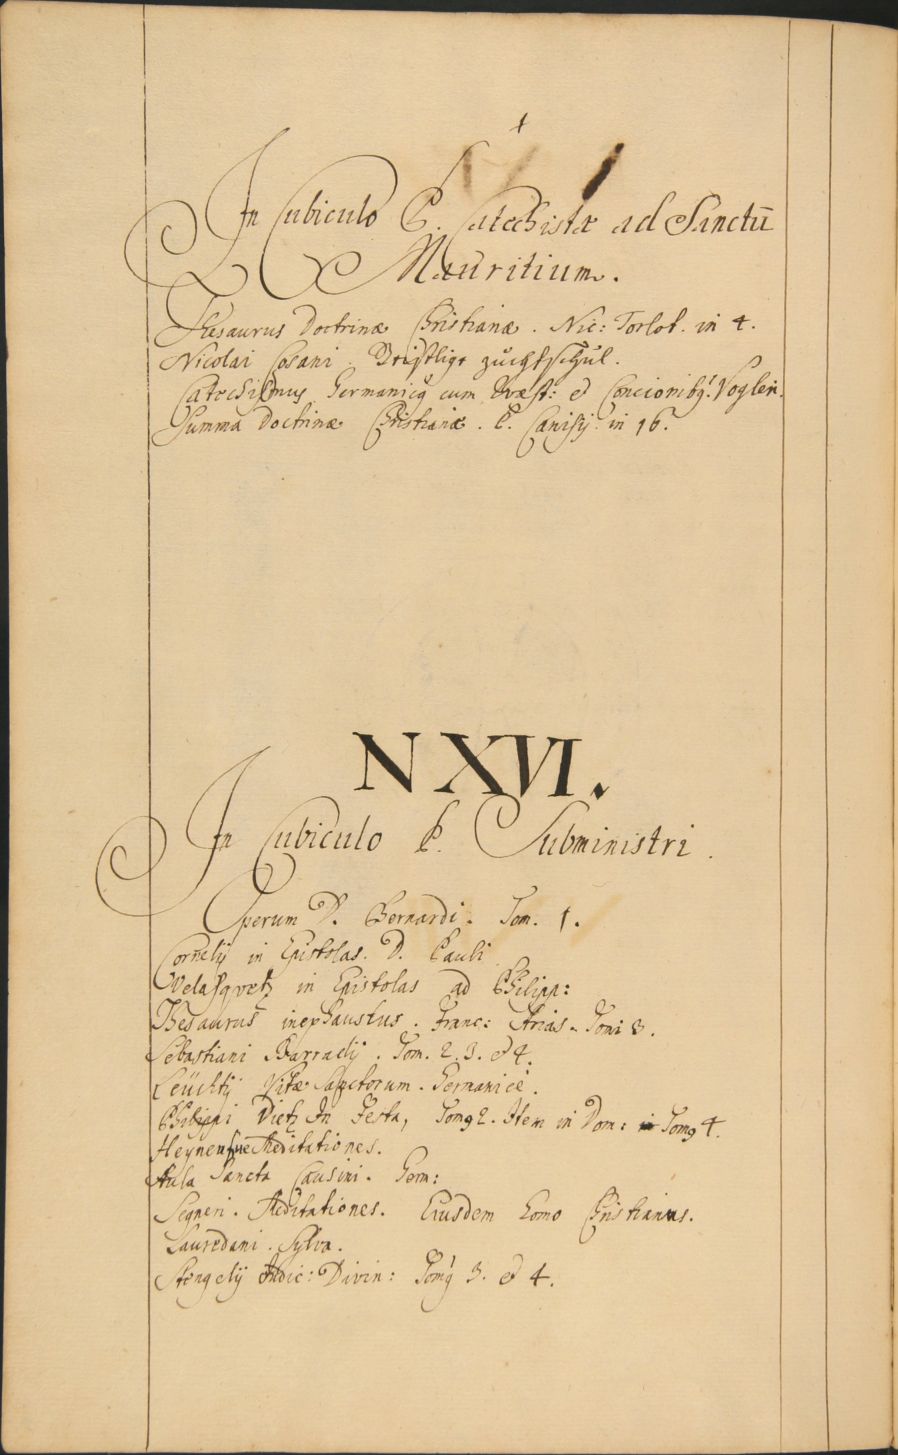 In Cubiculo P. Catechistæ ad Sanctū
Mauritium.
Thesaurus Doctrinæ Christianæ. Nic: Torlot. in 4.
Nicolai Cosani. Christlige zuchtschul.
Catechismus Germanicq cum Quæst: et Concionibq. Vogler.
Summa Doctrinæ Christianæ. P. Canisij in 16.
N XVI.
In Cubiculo P. Subministri.
Operum D. Bernardi. Tom. 1.
Cornelij in Epistolas. D. Pauli
Velasqvetz in Epistolas ad Philipp:
Thesaurus inexhaustus. Franc: Arias. Tomi 3.
Sebastiani Barradij. Tom. 2. 3. et 4.
Leüchtij Vitæ Sanctorum. Germanicè.
Philippi Dietz In Festa, Tomq 2. Item in Dom: Tomq 4.
Heynensue Meditationes.
Aula Sancta Causini. Germ:
Segneri. Meditationes. Eiusdem Homo Christianus.
Lauredani. Sylva.
Stengelij Iudic: Divin: Tomq 3. et 4.